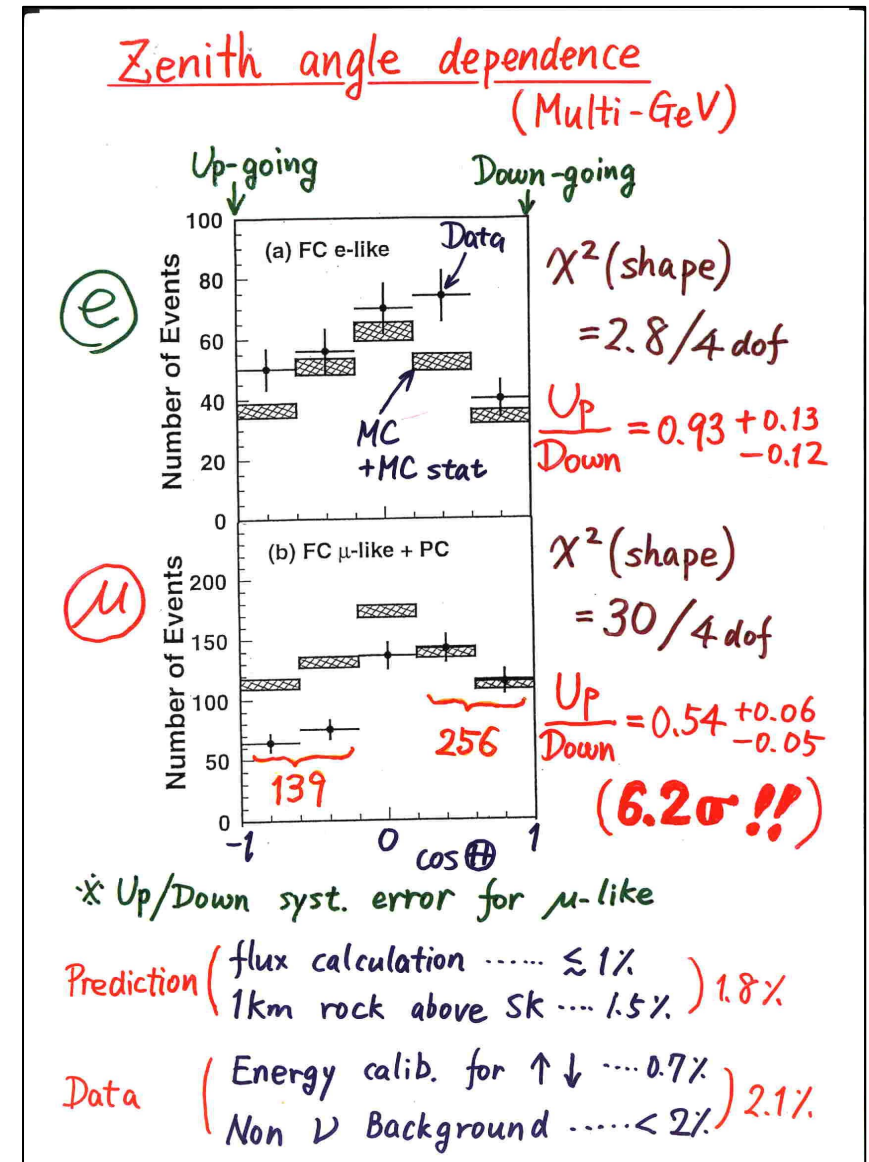 Zenith angle dependence
(Multi-GeV)
Up-going
Down-going
100
80
60
40
20
0
Number of Events
(a) FC e-like
Data
MC
+MC stat
e
χ²(shape)
=2.8/4 dof
Up/Down = 0.93 +0.13 −0.12
200
150
100
50
0
Number of Events
(b) FC μ-like + PC
139
256
μ
χ²(shape)
=30/4 dof
Up/Down =0.54 +0.06 −0.05
(6.2σ !!)
-1
0
1
cos Θ
※ Up/Down syst. error for μ-like
Prediction ( flux calculation ...... ≲ 1%
1km rock above SK .... 1.5% ) 1.8%
Data ( Energy calib. for ↑ ↓ .... 0.7%
Non ν Background ..... < 2% ) 2.1%